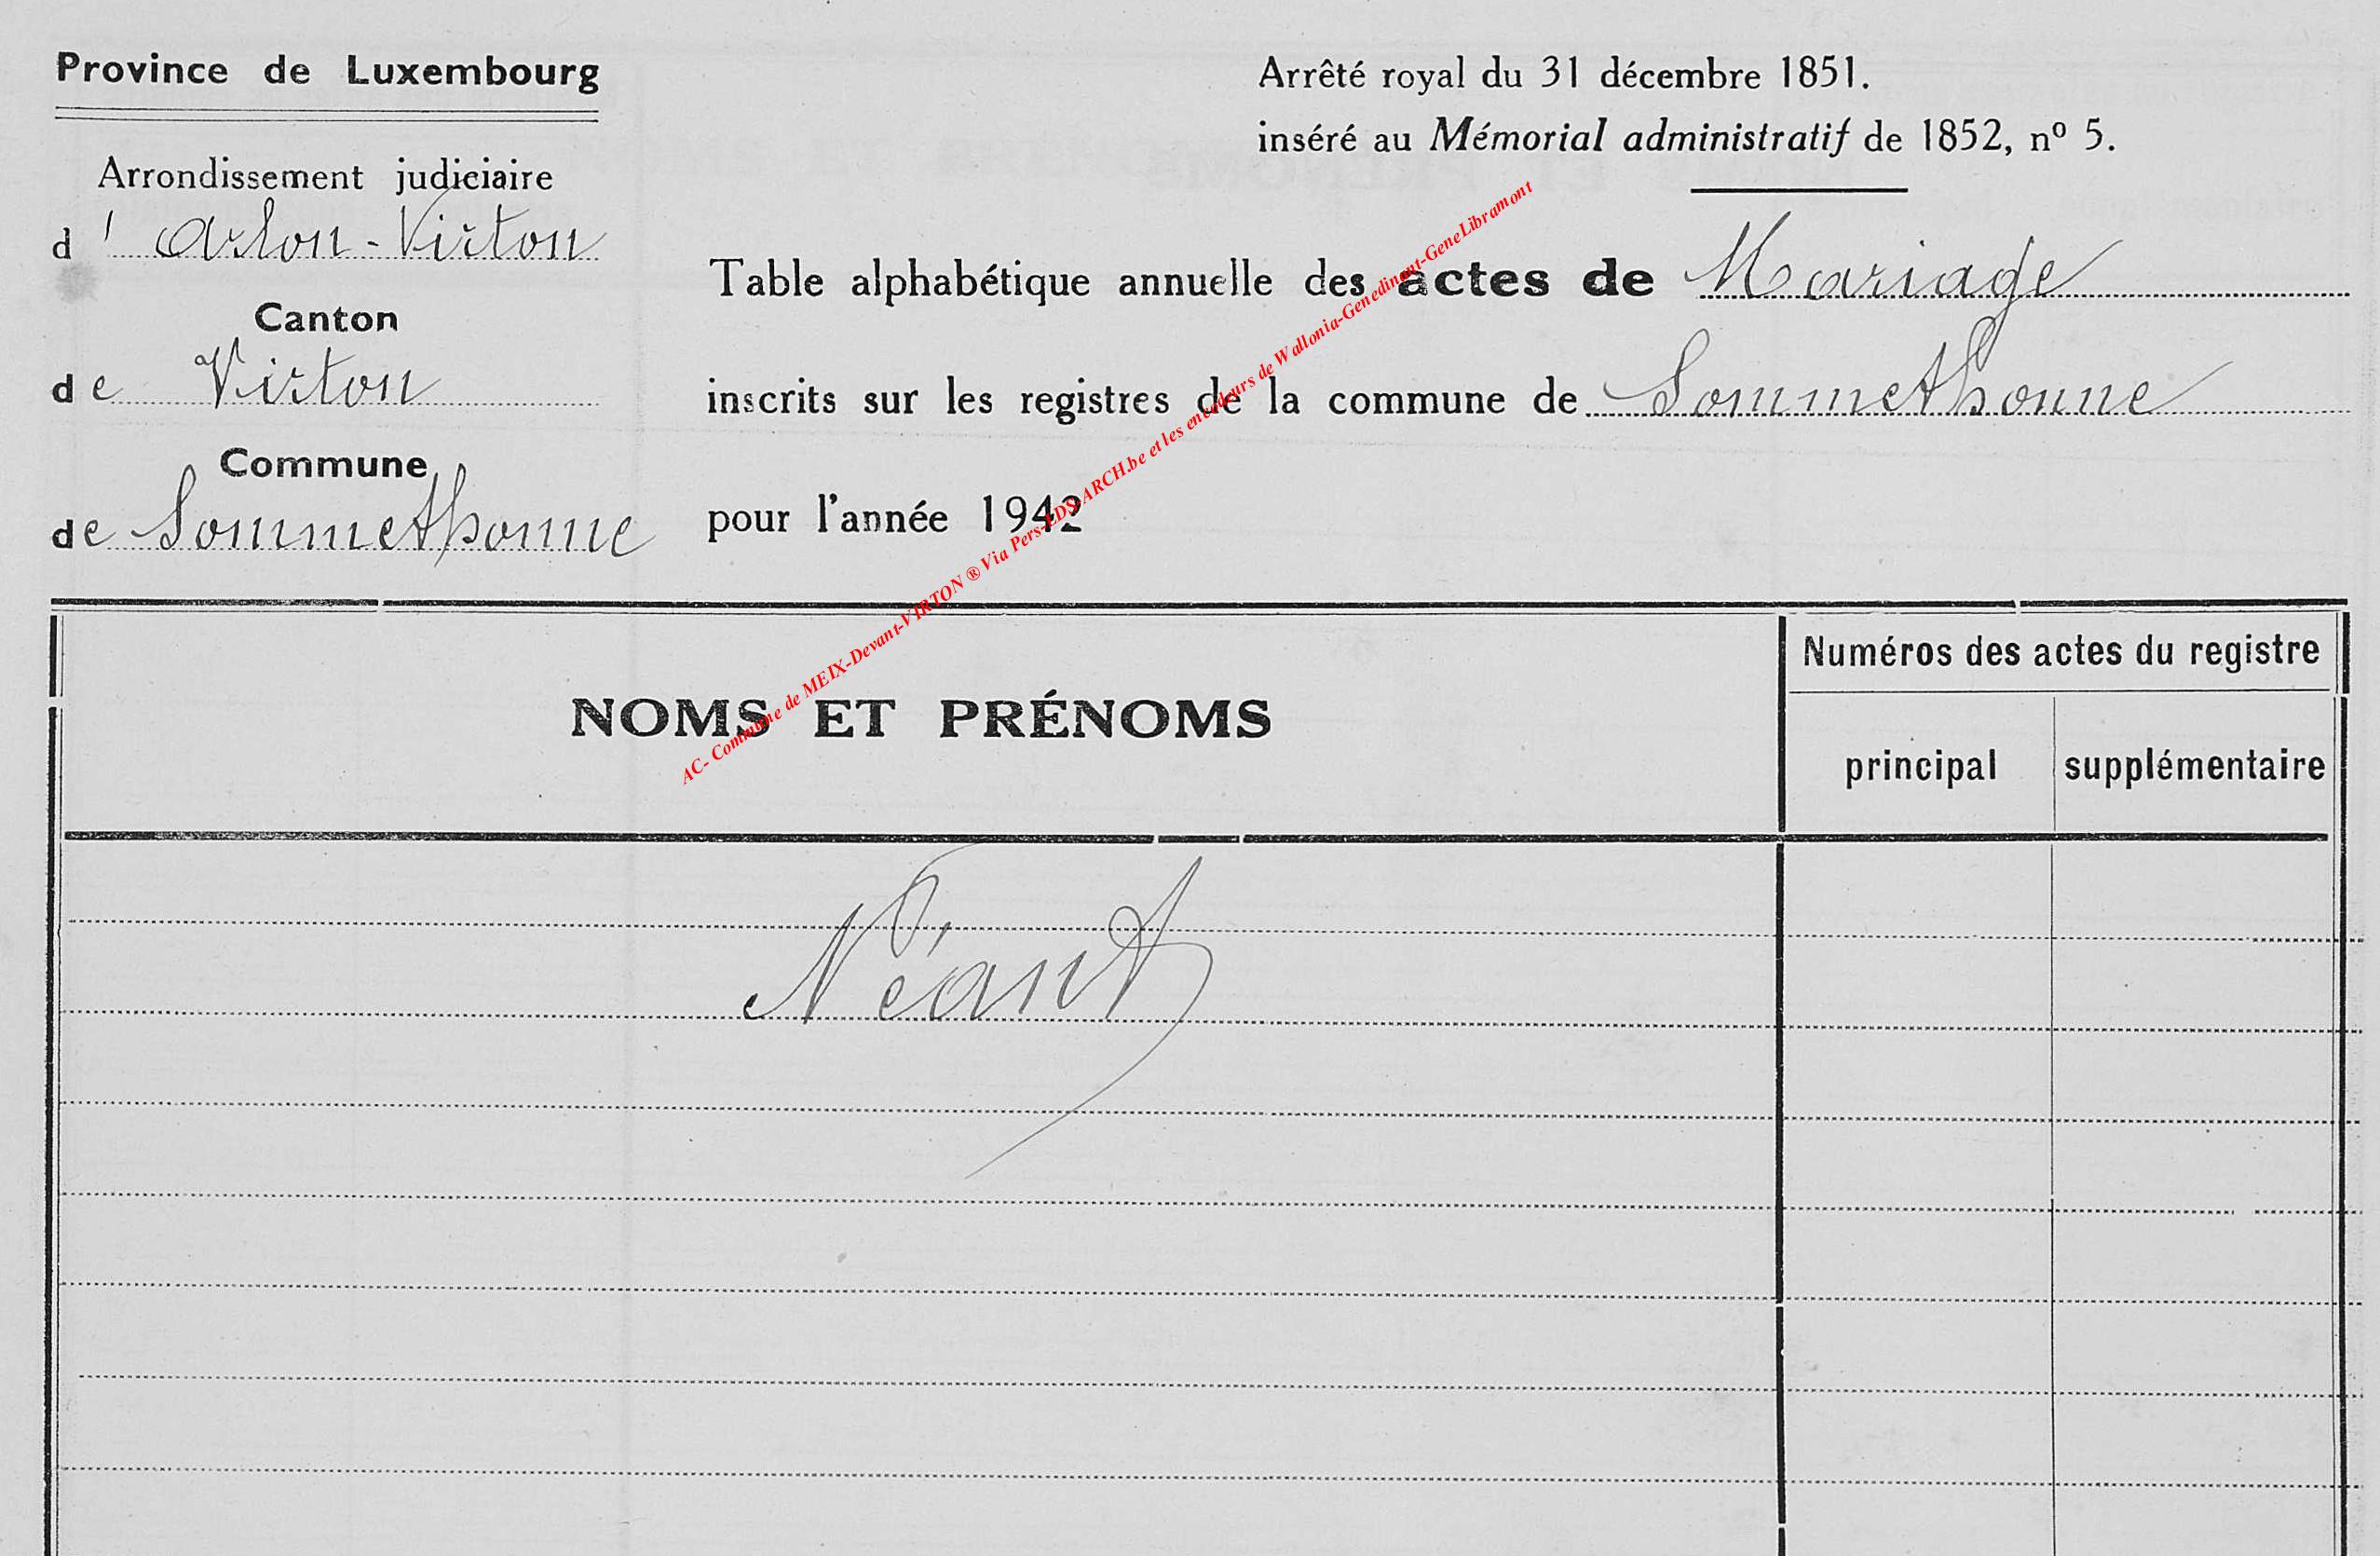 Province de Luxembourg
Arrondissement judiciaire
d' Arlon-Virton
Canton
de Virton
Commune
de Sommethonne
Arrêté royal du 31 décembre 1851.
inséré au Mémorial administratif de 1852, nº 5.
Table alphabétique annuelle des actes de Mariage
inscrits sur les registres de la commune de Sommethonne
pour l'année 1942
AC- Commune de MEIX-Devant-VIRTON ® Via Pers-LDS-ARCH.be et les encodeurs de Wallonia-Genedinant-GeneLibramont
NOMS ET PRÉNOMS
Numéros des actes du registre
principal
supplémentaire
Néant